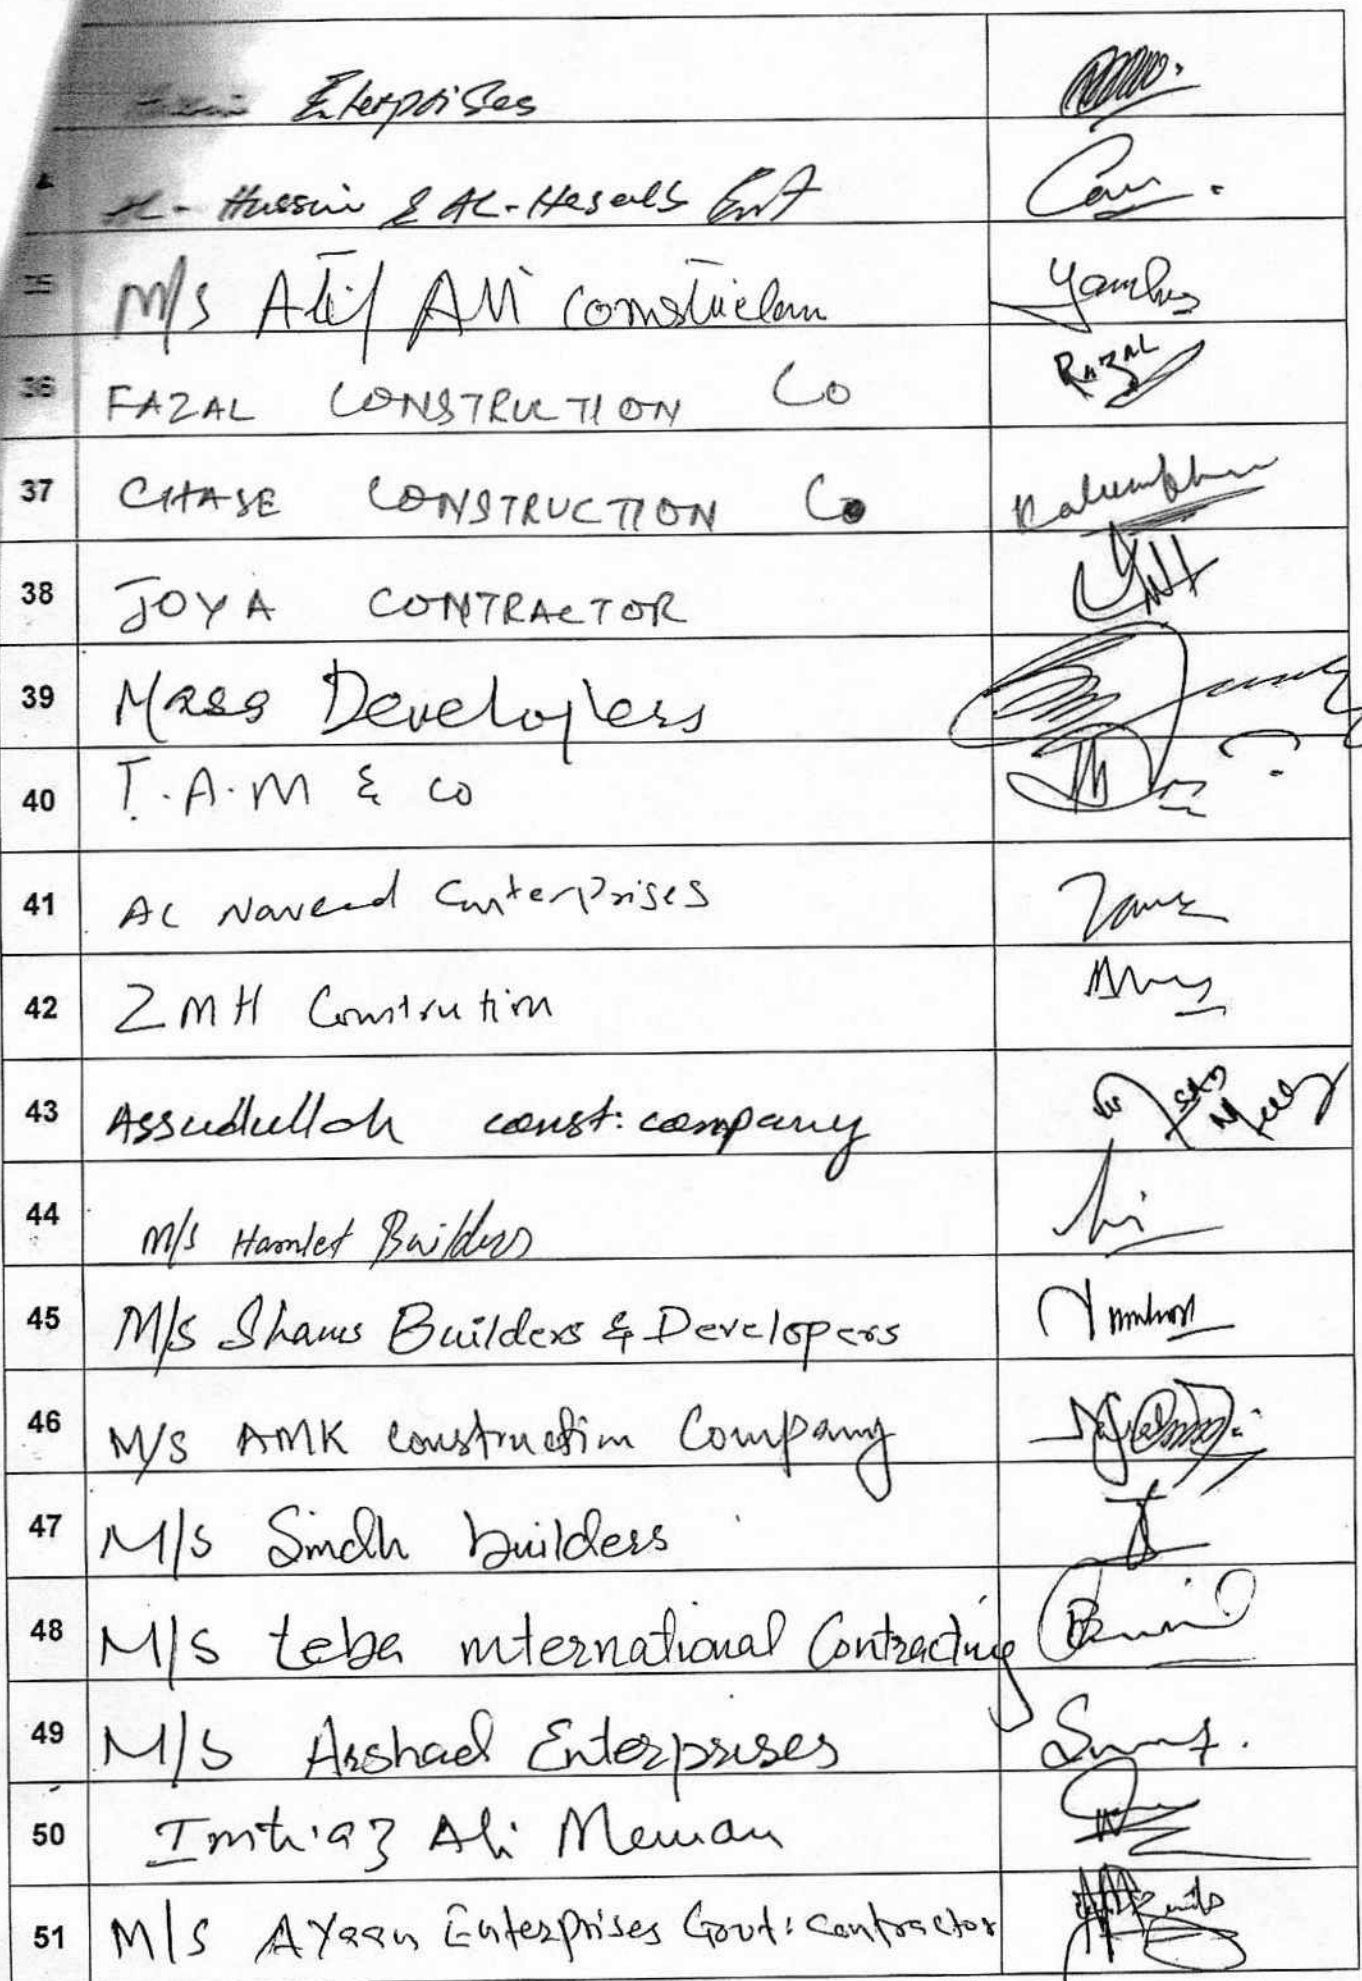 Eterprises
Hussain & AL-
35 M/s Atif Ali Construction
36 FAZAL CONSTRUCTION Co RAZAL
37 CHASE CONSTRUCTION Co
38 JOYA CONTRACTOR
39 Mass Developers
40 T.A.M & co
41 AL Naveed Enterprises
42 ZMH Constrution
43 Assudullah const: company
44 M/s Hamlet Builders
45 M/s Shams Builders & Developers
46 M/s AMK construction Company
47 M/S Sindh builders
48 M/S teba international Contracting
49 M/S Arshad Enterprises
50 Imtiaz Ali Memon
51 M/S Ayaan Enterprises Govt: contractor